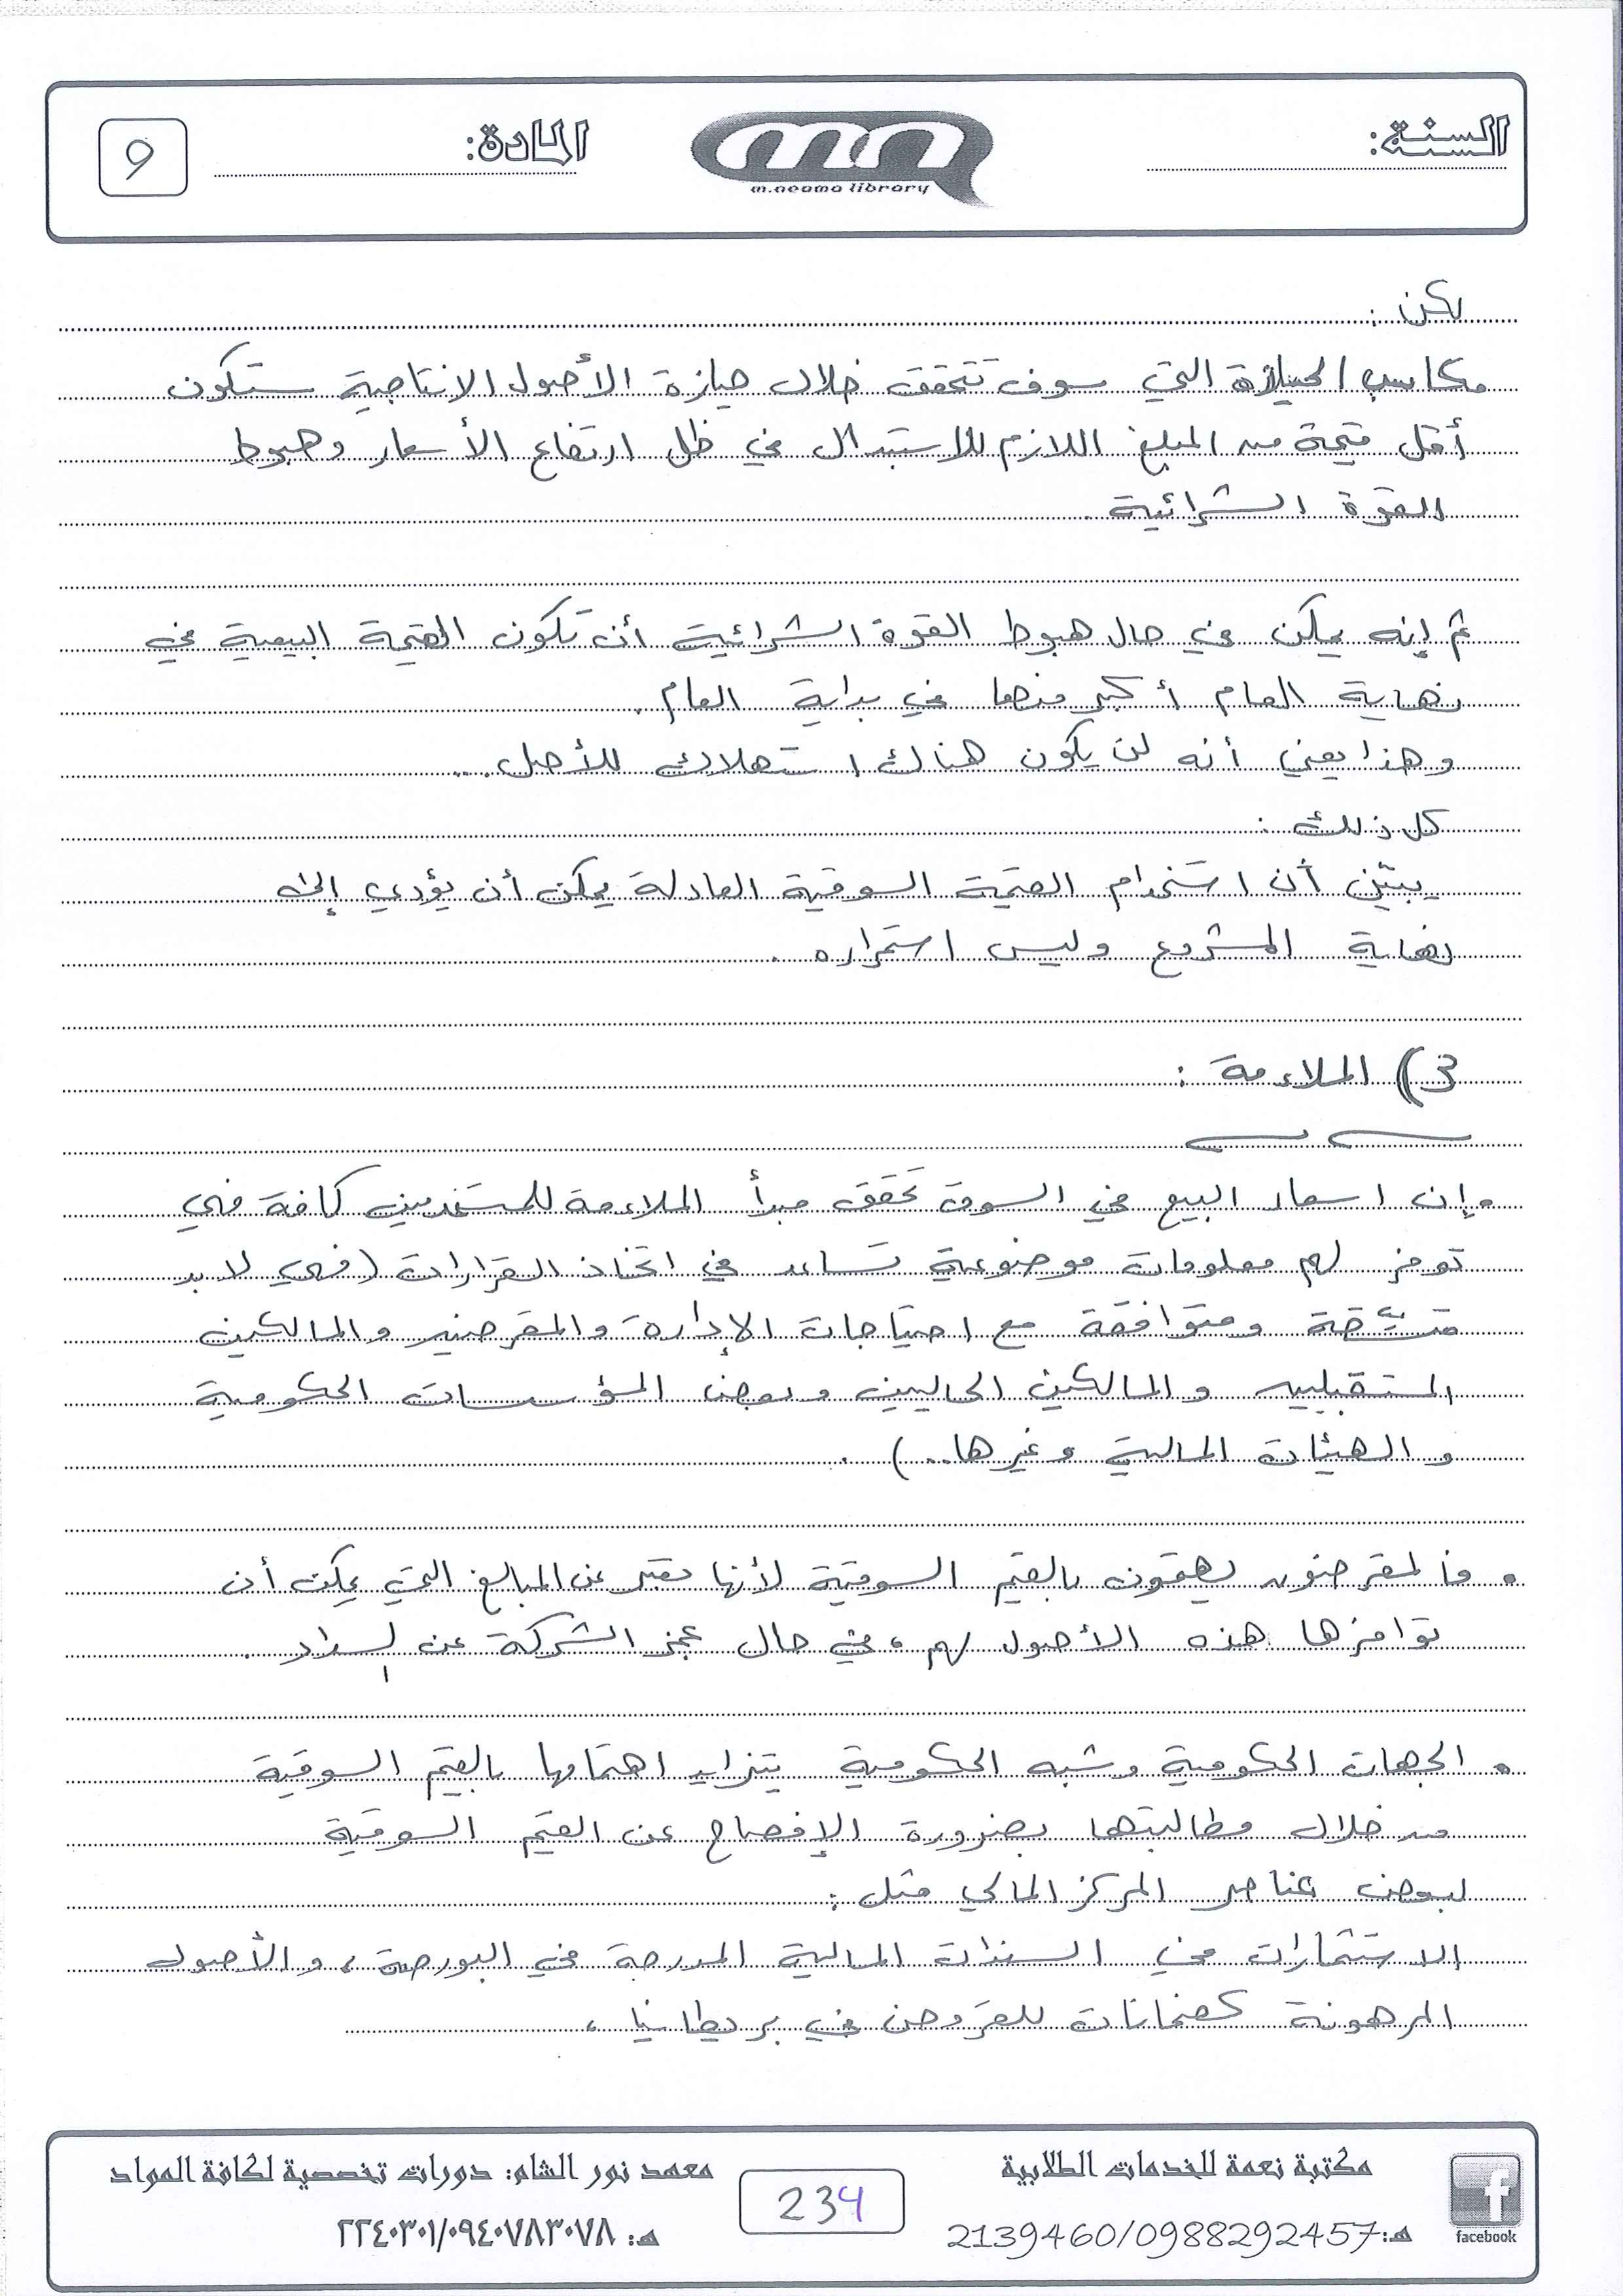 السنة:
mn
m.neama library
المادة:
9
لكن :
مكاسب الحيازة التي سوف تتحقق خلال حيازة الأصول الانتاجية ستكون
أقل قيمة من المبلغ اللازم للاستبدال في ظل ارتفاع الأسعار وهبوط
القوة الشرائية .
ثم إنه يمكن في حال هبوط القوة الشرائية أن تكون القيمة البيعية في
نهاية العام أكبر منها في بداية العام .
وهذا يعني أنه لن يكون هناك استهلاك للأصل ...
كل ذلك :
يبيّن أن استخدام القيمة السوقية العادلة يمكن أن يؤدي إلى
نهاية المشروع وليس استمراره .
3) الملاءمة :
• إن اسعار البيع في السوق تحقق مبدأ الملاءمة للمستخدمين كافة فهي
توفر لهم معلومات موضوعية تساعد في اتخاذ القرارات (فهي لا بد
متسّقة ومتوافقة مع احتياجات الإدارة والمقرضين والمالكين
المستقبليين والمالكين الحاليين وبعض المؤسسات الحكومية
والهيئات المالية وغيرها ..) .
• فالمقرضون يهتمون بالقيم السوقية لأنها تعبر عن المبالغ التي يمكن أن
توافرها هذه الأصول لهم، في حال عجز الشركة عن السداد .
• الجهات الحكومية وشبه الحكومية يتزايد اهتمامها بالقيم السوقية
من خلال مطالبتها بضرورة الإفصاح عن القيم السوقية
لبعض عناصر المركز المالي مثل :
الاستثمارات في السندات المالية المدرجة في البورصة، والأصول
المرهونة كضمانات للقروض في بريطانيا ،
facebook
مكتبة نعمة للخدمات الطلابية
هـ: 2139460/0988292457
234
معهد نور الشام: دورات تخصصية لكافة المواد
هـ: ٢٢٤٠٣٠١/٠٩٤٠٧٨٣٠٧٨